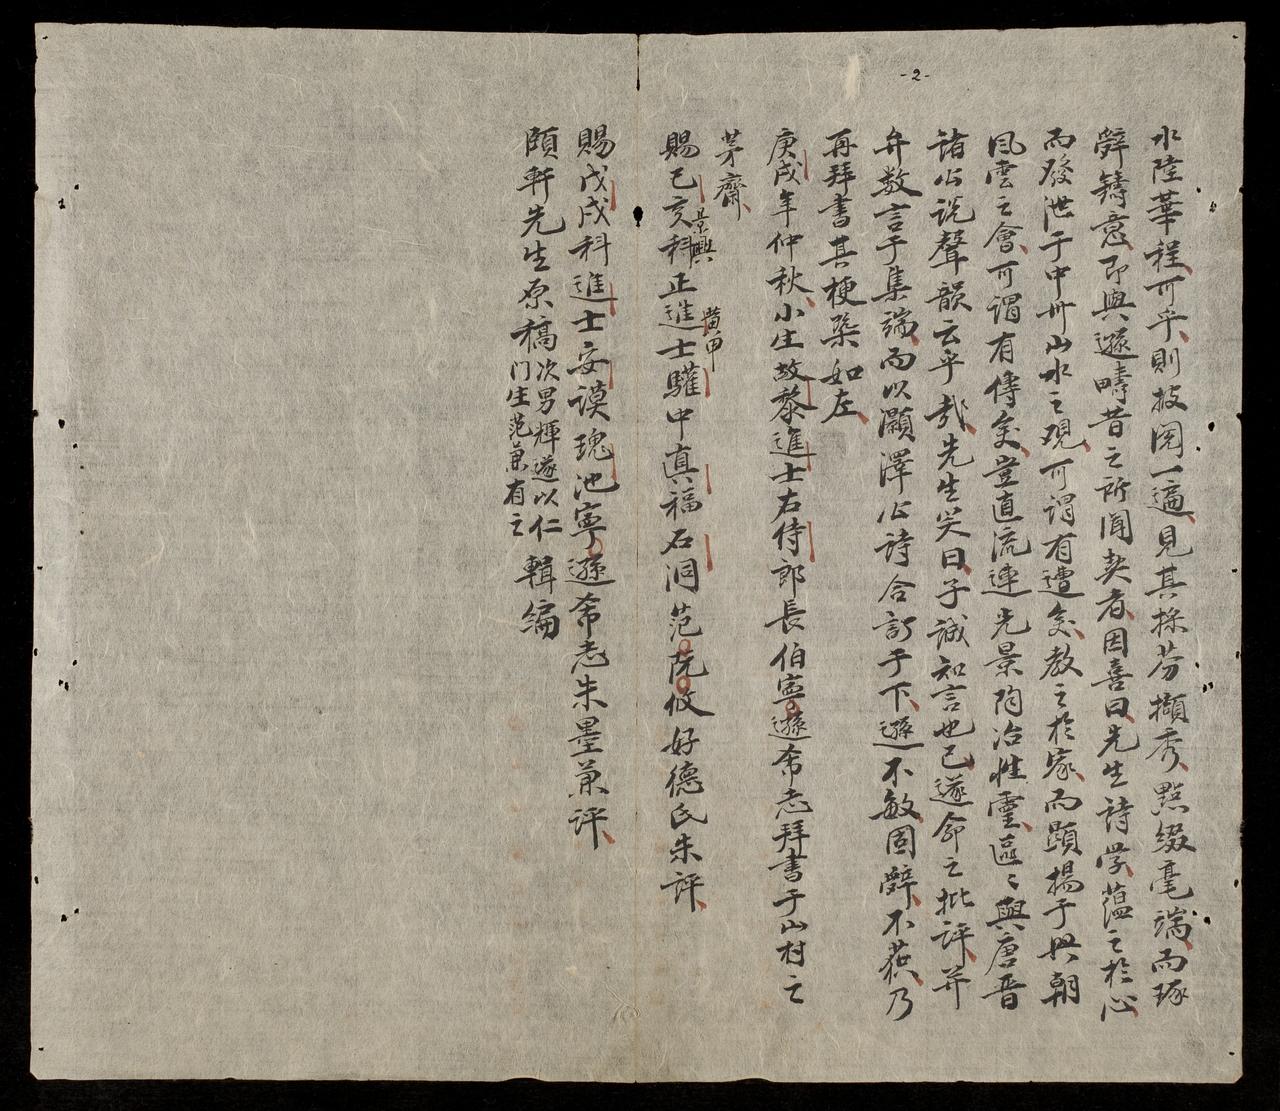 -2-
水陸華程可乎則披閱一遍見其採芬擷秀點綴毫端而琢
辭鑄意即與遜疇昔之所聞契者因喜曰先生詩学蘊之於心
而發泄于中州山水之覌可謂有遭矣教之於家而顕揚于興朝
風雲之會可謂有傳矣豈直流連光景陶冶性灵區〻與唐晋
諸公説聲韻云乎哉先生笑曰子誠知言也已遂命之批評并
弁数言于集端而以灝澤公詩合訂于下遜不敏固辭不获乃
再拜書其梗槩如左
庚戌年仲秋小生故黎進士右侍郎長伯寧遜希志拜書于山村之
茅齋
賜己亥景興科正進士黄甲驩中真福石洞范阮攸好德氏朱評
賜戊戌科進士安謨瑰池寧遜希志朱墨兼評
頤軒先生原稿次男輝遂以仁門生范兼有之輯編